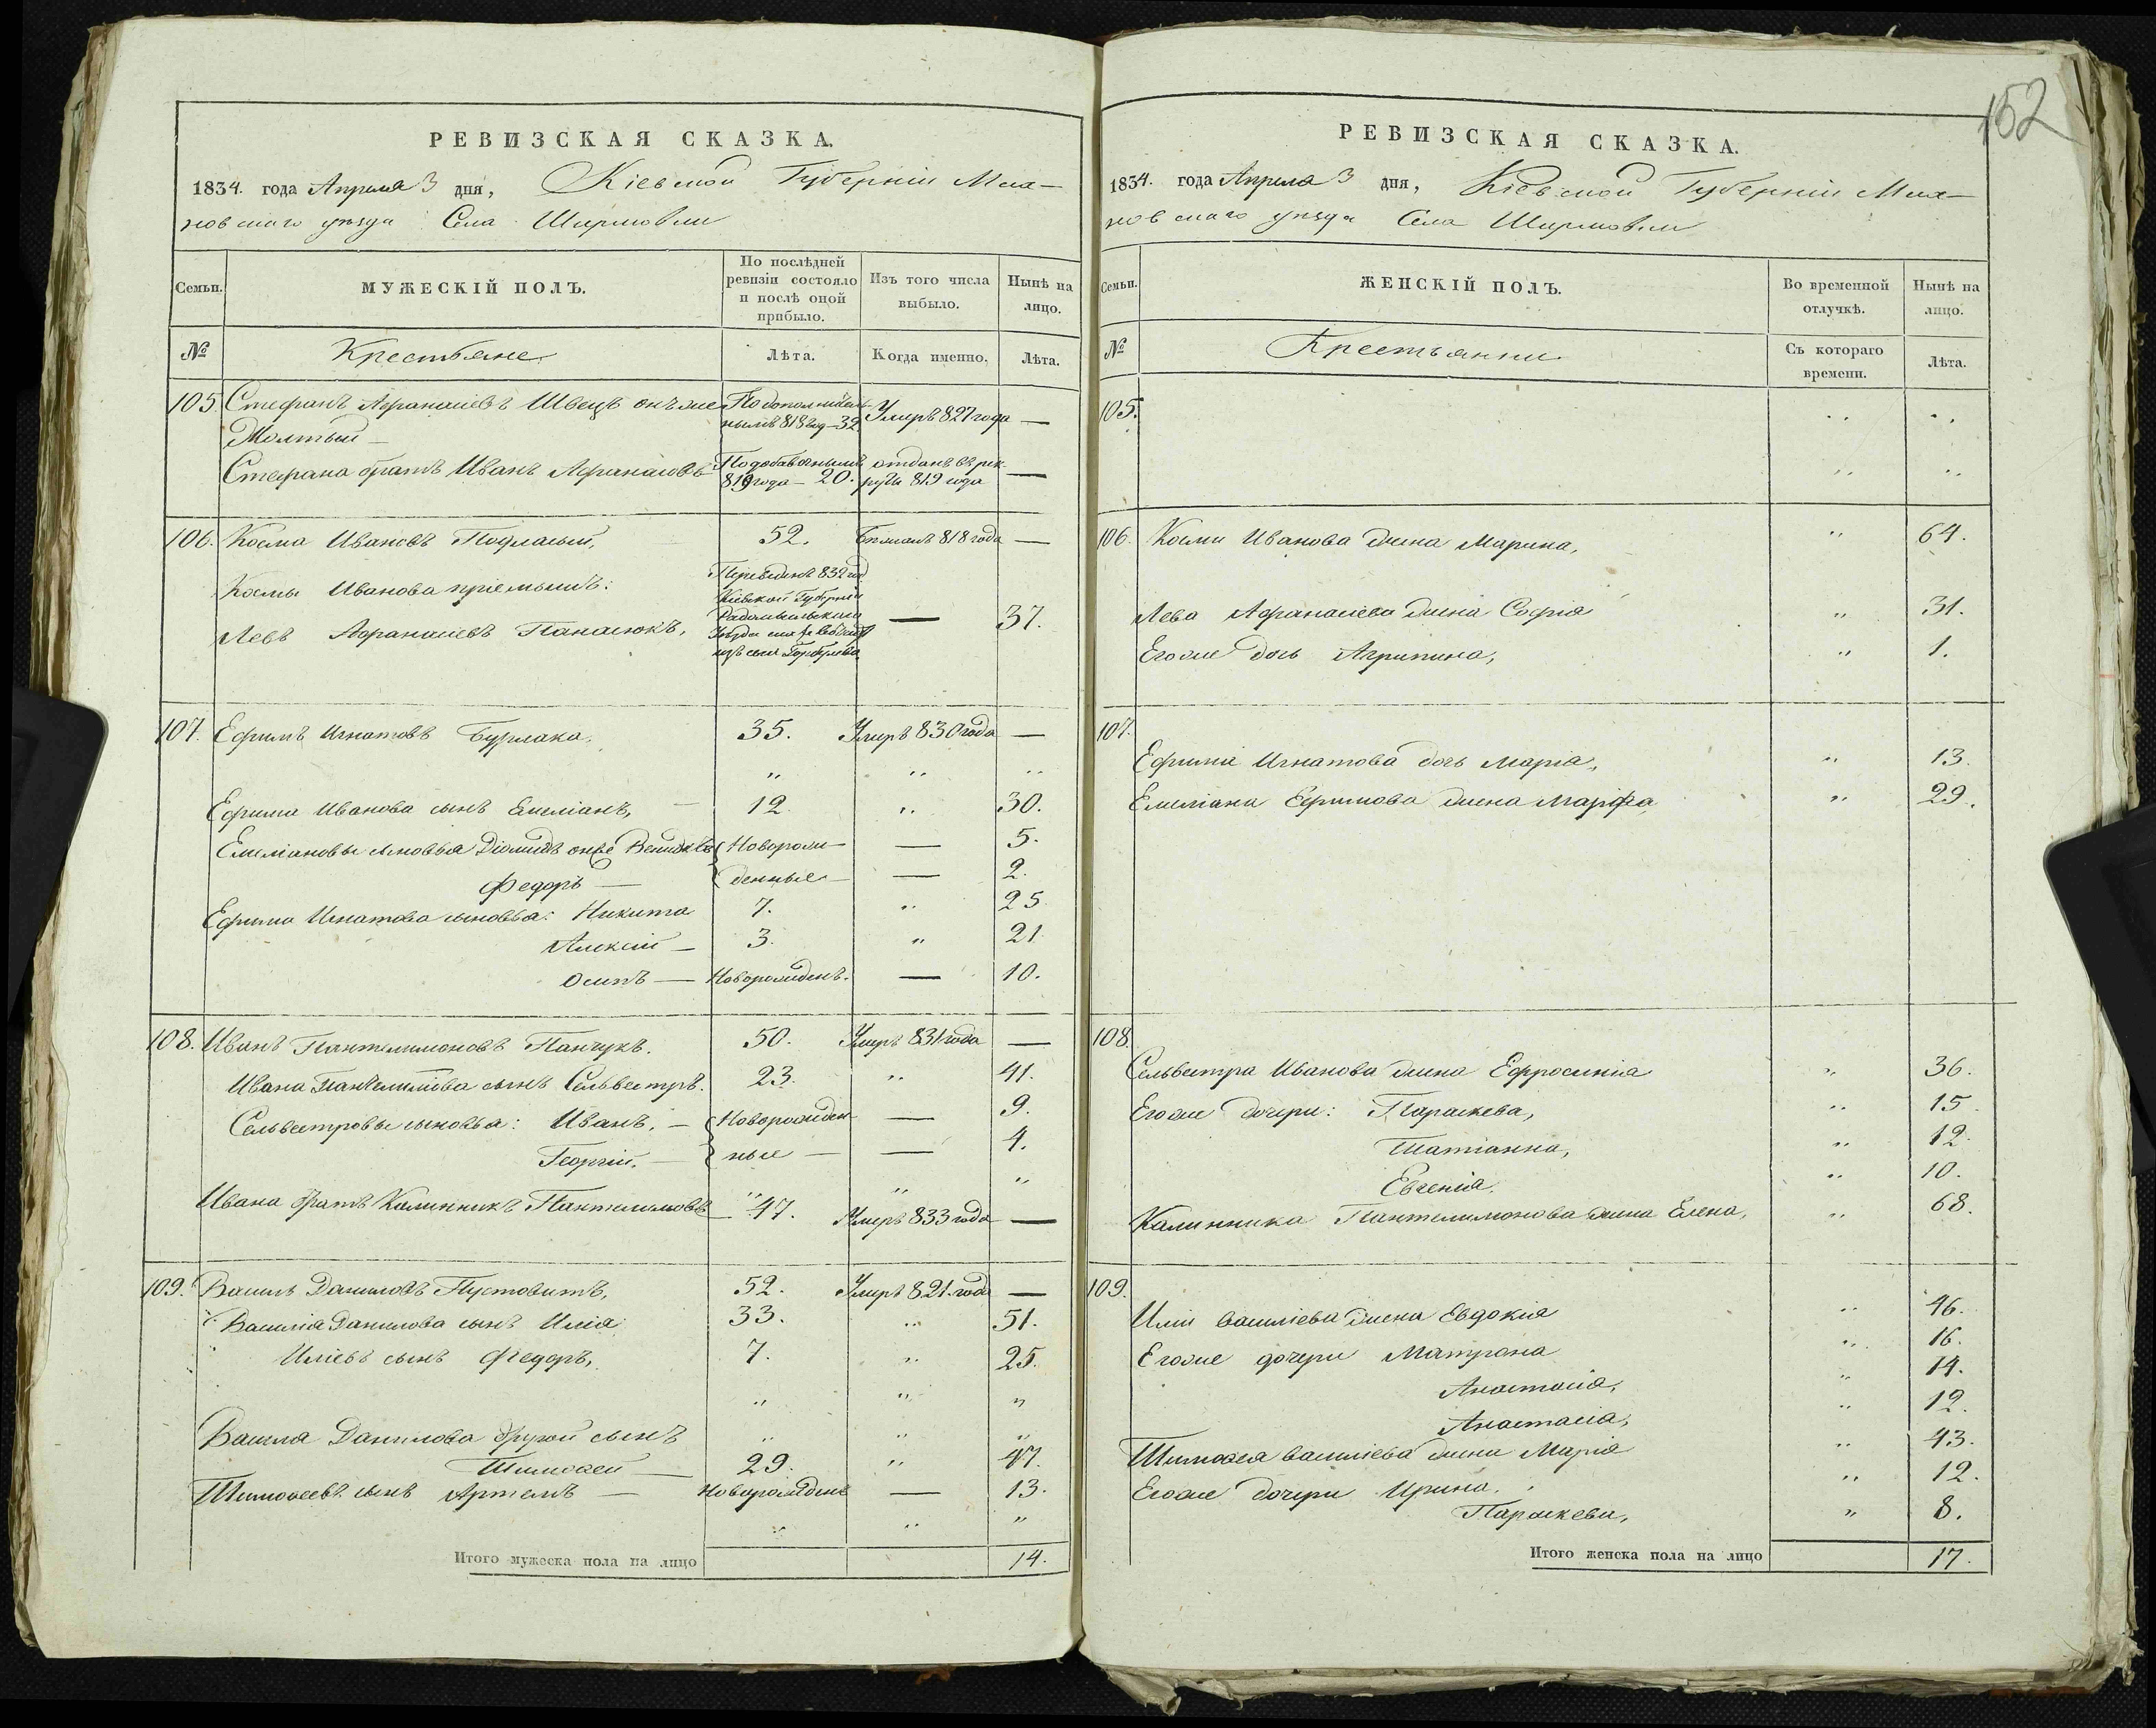 152
РЕВИЗСКАЯ СКАЗКА.
1834. года Апреля 3 дня, Кіевской Губерніи Мах-
новскаго уезда Села Ширмовки
Семьи.
МУЖЕСКІЙ ПОЛЪ.
По послѣдней ревизіи состояло и послѣ оной прибыло.
Изъ того числа выбыло.
Нынѣ на лицо.
№ Крестьяне Лѣта. Когда именно. Лѣта.
105. Стефанъ Афанасіевъ Швецъ онъже По дополнитель- Умеръ 827 года —
Жолтый — нымъ 818 год — 32.
Стефана братъ Иванъ Афанасіовъ По добавочнымъ отданъ въ рек- —
819 года — 20. руты 819 года
106. Косма Ивановъ 52. Бежалъ 818 года —
Космы Иванова пріемышъ: Переведенъ 832 год
Кіевской Губерніи
Левъ Афанасіевъ Панасюкъ, Радомысльскаго — 37.
изъ села
107. Ефимъ Игнатовъ Бурлака. 35. Умеръ 830 года —
„ „ „
Ефима Иванова сынъ Емеліанъ, — 12. „ 30.
Емеліановы сыновья Діомидъ онже Новорож- — 5.
Федоръ — денные — — 2.
Ефима Игнатова сыновья: Никита 7. „ 25
Алексій — 3. „ 21
Осипъ — Новорожденъ. — 10.
108. Иванъ Пантелимоновъ Панчукъ. 50. Умеръ 831 года —
Ивана Пантелимова сынъ Сельвестръ. 23. „ 41.
Сельвестровы сыновья: Иванъ. — Новорожден- — 9.
Георгій. — ные — — 4.
„ „ „
Ивана братъ Калинникъ Пантелимовъ 47. Умеръ 833 года —
109. Василь Даниловъ Пустовитъ, 52. Умеръ 821. года —
Василія Данилова сынъ Илія 33. „ 51.
Иліевъ сынъ Федоръ, 7. „ 25.
„ „ „
Васила Данилова другой сынъ „ „ „
Тимофей — 29. „ 47.
Тимофеевъ сынъ Артемъ — Новорожденъ — 13.
„ „ „
Итого мужеска пола на лицо 14.
РЕВИЗСКАЯ СКАЗКА.
1834. года Апреля 3 дня, Кіевской Губерніи Мах-
новскаго уезда Села Ширмовки
Семьи.
ЖЕНСКІЙ ПОЛЪ.
Во временной отлучкѣ.
Нынѣ на лицо.
№ Крестьянки Съ котораго времени. Лѣта.
105. „ „
„ „
106. Космы Иванова жена Марина, „ 64.
Лева Афанасіева жена Софія „ 31.
Егоже дочь Агрипина, „ 1.
107.
Ефиміа Игнатова дочь Марія, „ 13.
Емеліана Ефимова жена Марфа „ 29.
108.
Сельвестра Иванова жена Ефросинія „ 36.
Егоже дочери: Параскева, „ 15
Татіанна, „ 12.
Евгенія. „ 10.
Калинника Пантелимонова жена Елена, „ 68.
109.
Иліи Василіева жена Евдокія „ 46.
Егоже дочери Матрона „ 16.
Анастасія, „ 14.
Анастасія, „ 12.
Тимофея Василіева жена Марія „ 43.
Егоже дочери Ирина. „ 12.
Параскева, „ 8.
Итого женска пола на лицо 17.